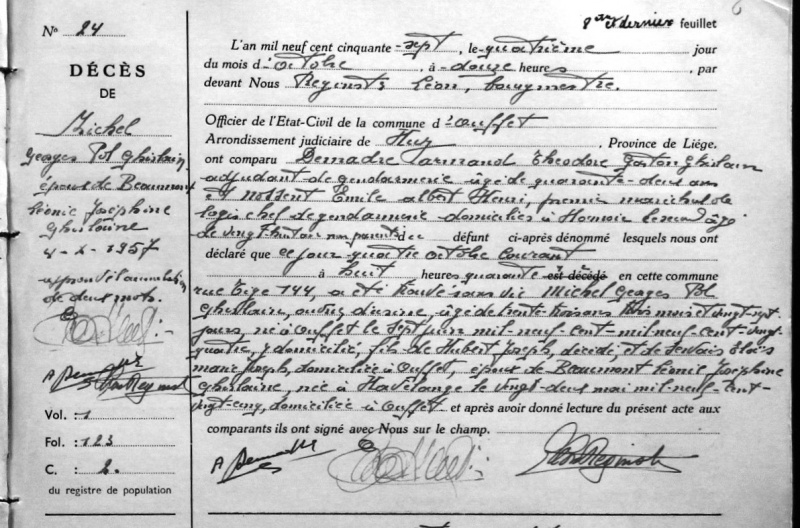 8 et dernier feuillet
6
N° 24
DÉCÈS
DE
Michel
Georges Pol Ghislain
époux de Beaumont
Josephine
Ghislaine
4-X-1957
approuvé l'annulation
de deux mots.
Vol. : 1
Fol. : 123
C. : 2.
du registre de population
L'an mil neuf cent cinquante sept, le quatrième jour
du mois d'octobre, à douze heures, par
devant Nous Reginster Léon, bourgmestre.
Officier de l'Etat-Civil de la commune d'Ouffet
Arrondissement judiciaire de Huy, Province de Liège.
ont comparu Demadre Armand Théodore Gaston Ghislain
adjudant de gendarmerie âgé de quarante-deux ans
et Emile Albert Henri, premier maréchal de
logis chef de gendarmerie domiciliés à Hamoir le second âgé
de vingt-huit ans non parents du défunt ci-après dénommé lesquels nous ont
déclaré que ce jour quatre octobre courant
à huit heures quarante est décédé en cette commune
rue Tige 144, a été trouvé sans vie Michel Georges Pol
Ghislain, âgé de trente-trois ans trois mois et vingt-sept
jours, né à Ouffet le sept juin mil neuf-cent-mil-neuf-cent-vingt-
quatre, y domicilié, fils de Hubert Joseph, décédé, et de Servais
Marie Joseph, domiciliée à Ouffet, époux de Beaumont Josephine
Ghislaine, née à Havelange le vingt-deux mai mil-neuf-cent-
vingt-cinq, domiciliée à Ouffet. et après avoir donné lecture du présent acte aux
comparants ils ont signé avec Nous sur le champ.